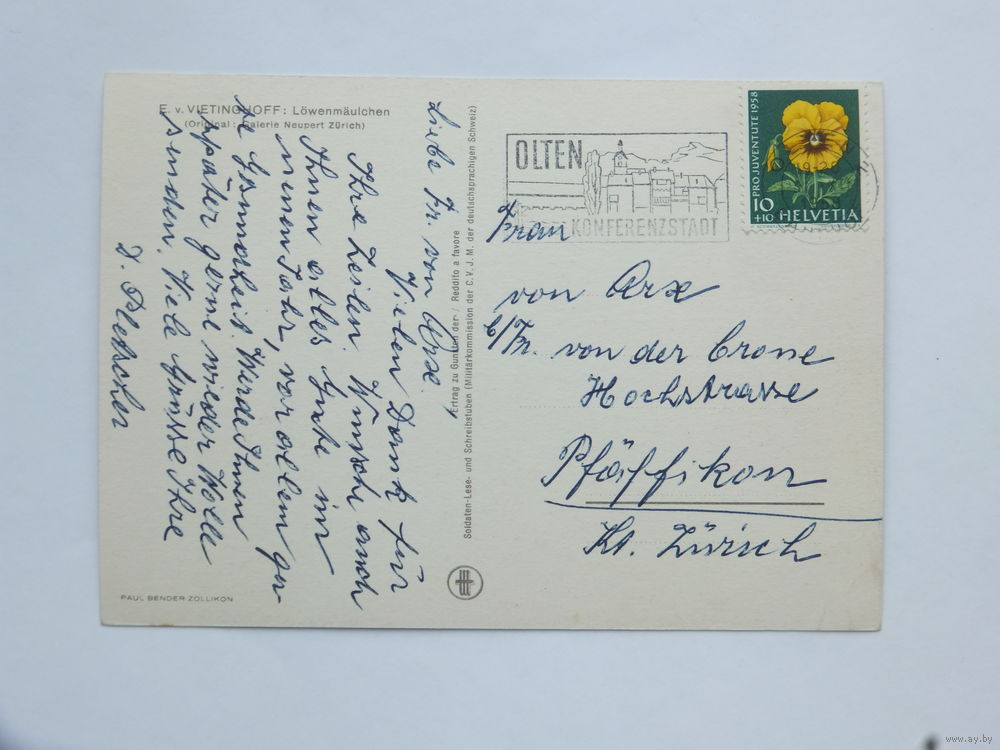 E. v. VIETINGHOFF: Löwenmäulchen
(Original: Galerie Neupert Zürich)
Liebe Fr. von Arx.
Vielen Dank für
Ihre Zeilen. Wünsche auch
Ihnen alles Gute im
neuen Jahr, vor allem gu-
te Gesundheit. Werde Ihnen
später gerne wieder Wolle
senden. Viele Grüsse Ihre
D. Pletscher
PAUL BENDER ZOLLIKON
Ertrag zu Gunsten der / Reddito a favore
Soldaten-Lese- und Schreibstuben (Militärkommission der C.V.J.M. der deutschsprachigen Schweiz)
OLTEN
KONFERENZSTADT
PRO JUVENTUTE 1958
10
+10 HELVETIA
Frau
von Arx
b/Fr. von der Crone
Hochstrasse
Pfäffikon
Kt. Zürich
www.ay.by